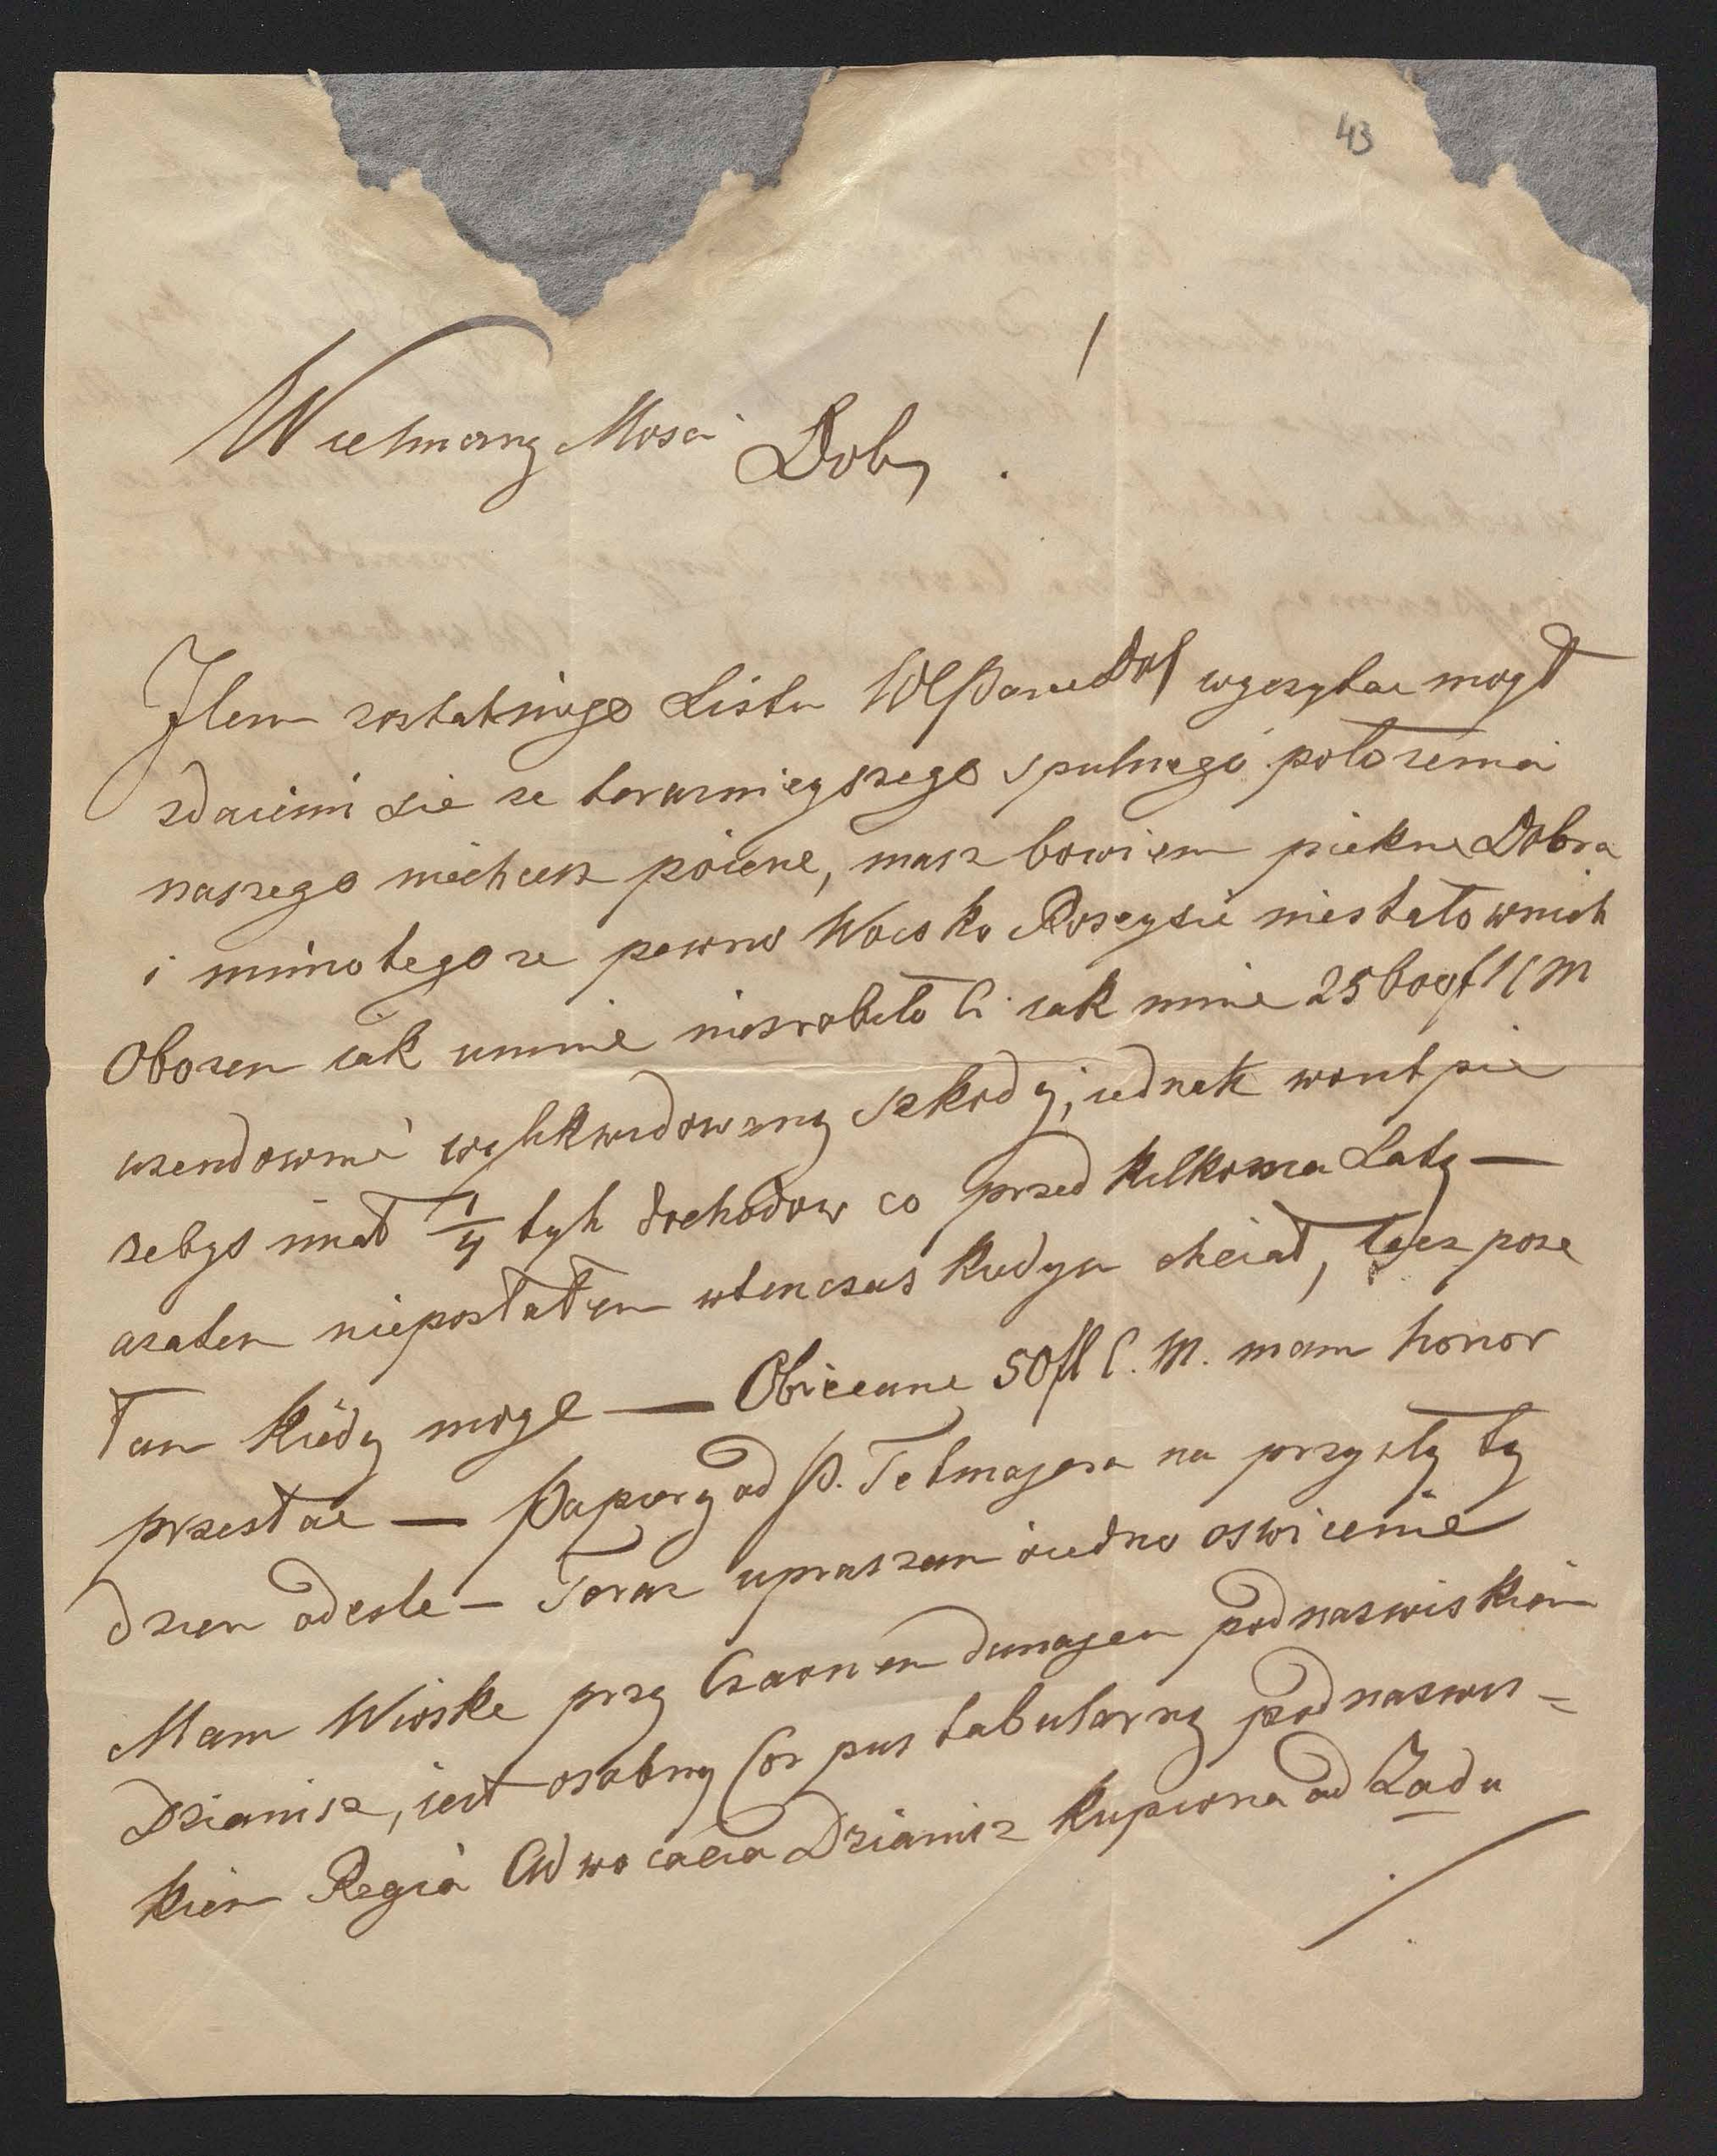 43
Wielmozny Mosci Dob
!
Jlem zostatniego Listu WPana Dob wyczytac mogł
zdaiemi sie ze terazniegszego spulnego połozenia
naszego niechcesz poiene, masz bowiem piekne Dobra
i mimo tego ze pewno Woisko Roszyskie niestało wnich
Obozem iak umnie niezrobiło Ci iak mnie 25 M
uzendownie wylikwidowany szkody, iednak wontpie
zebys miał 1/4 tyh dochodow co przed kilkoma Laty —
azatem niéposłałem wtenczas kiedym chciał, lecz pose
łam kiedy moge — Obiecane 50 fl C. M. mam honor
przesłac — Papiery od P. Tetmajera na przyszły ty
dzien odesle — Teraz upraszam oiedno oswicenie
Mam Wioske przy Czarnem dunajem podnazwiskiem
Dzianisz, iest osobny Corpus tabularny podnazwis =
kiem Regia Advocacia Dzianisz kupiona od Rządu